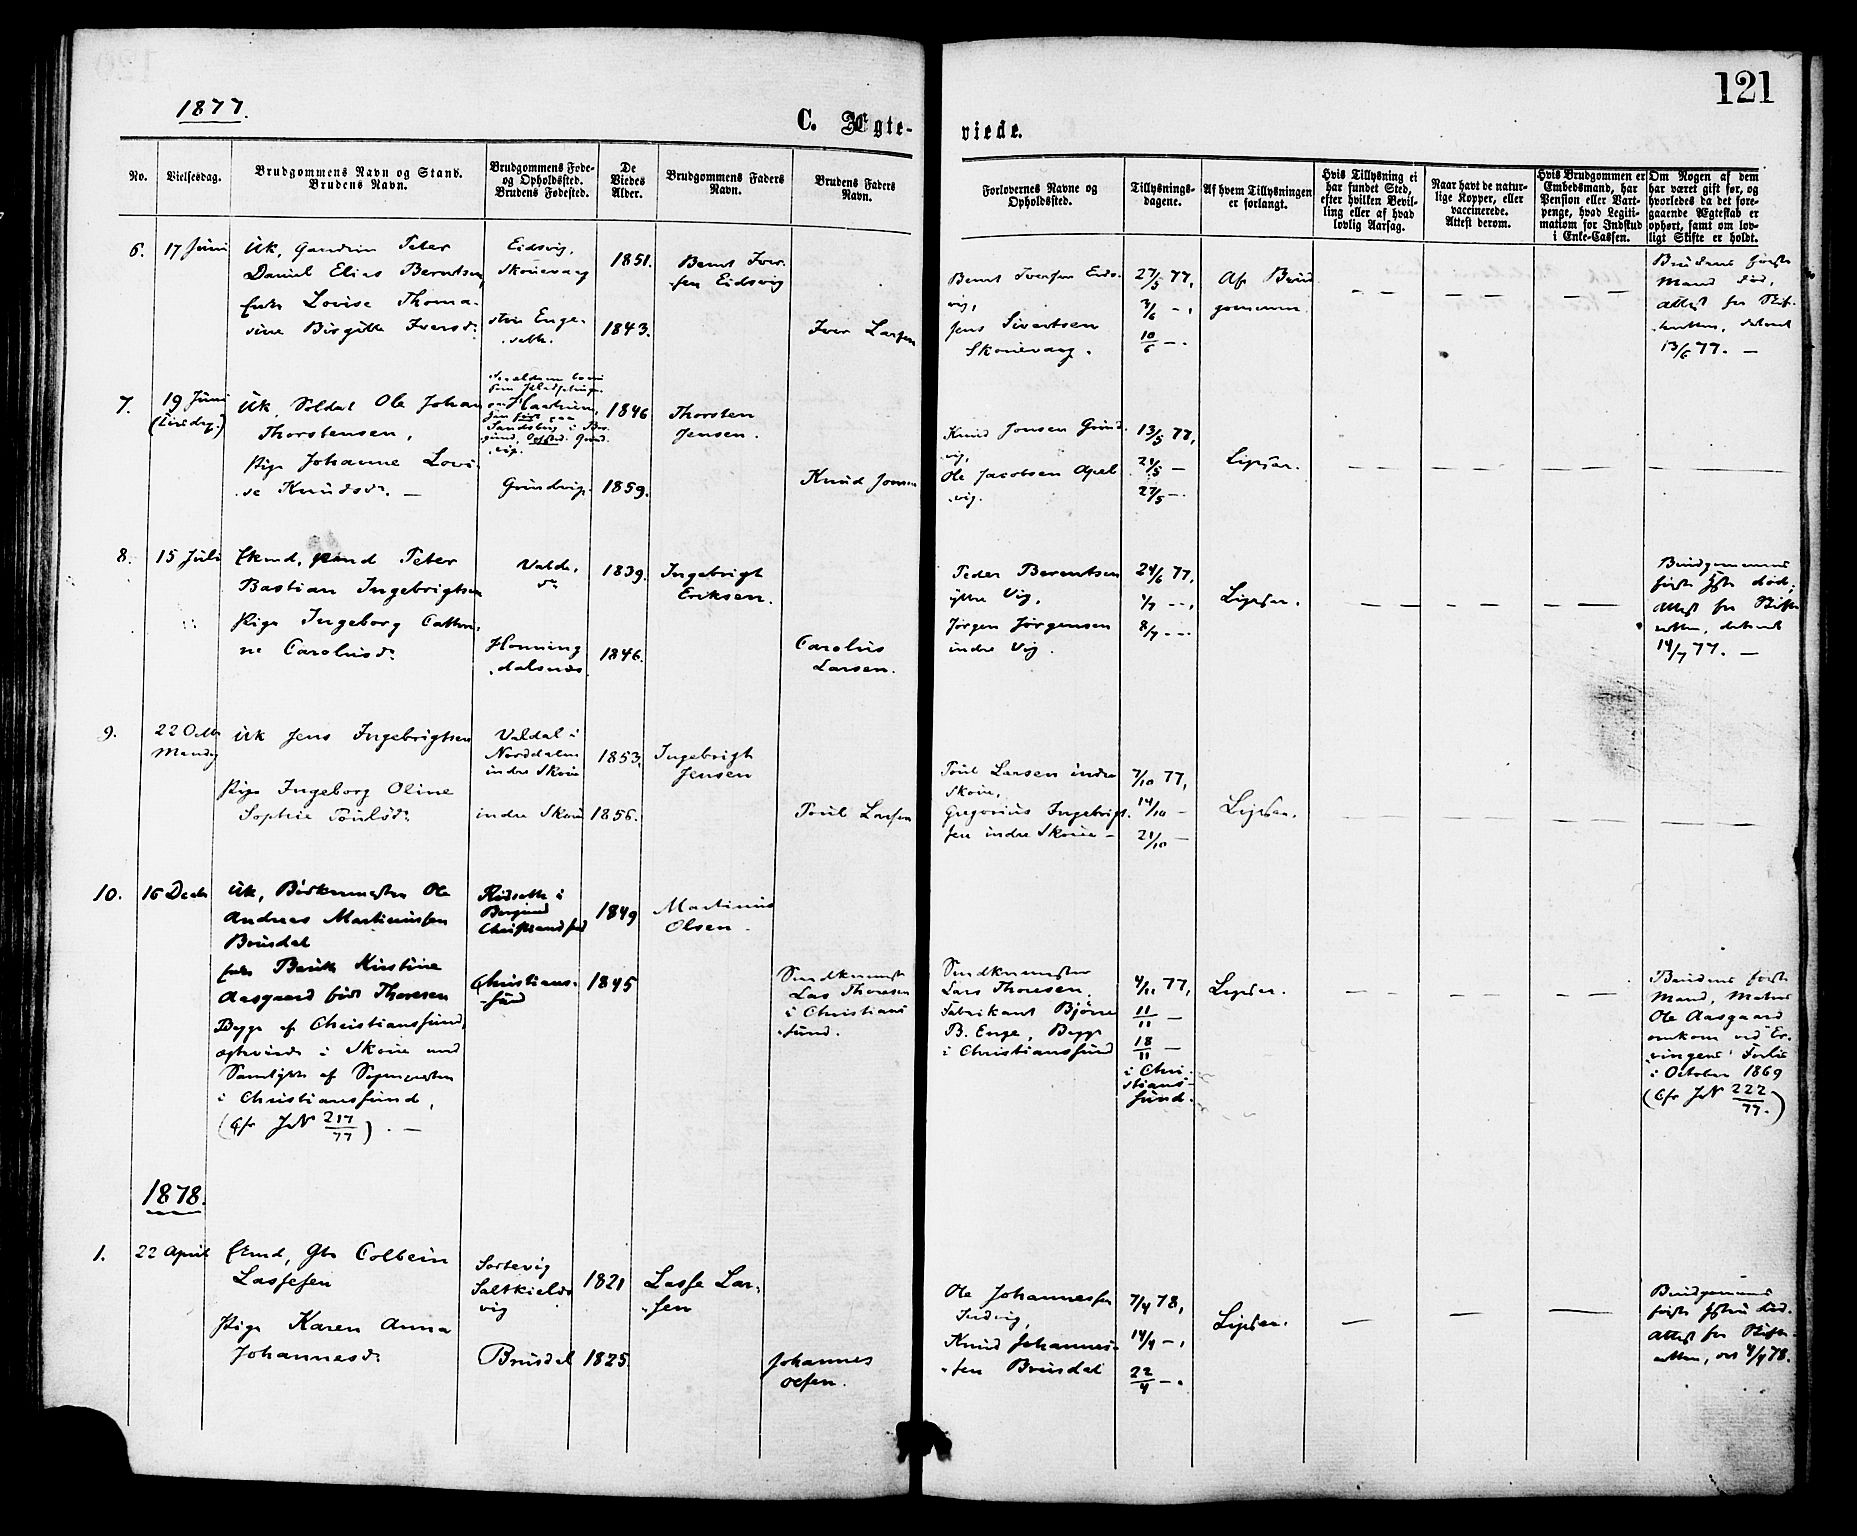 121
1877.
C. Ægte-
viede.
No.
Vielsesdag.
Brudgommens Navn og Stand.
Brudens Navn.
Brudgommens Føde-
og Opholdssted.
Brudens Fødested.
De
Viedes
Alder.
Brudgommens Faders
Navn.
Brudens Faders
Navn.
Forlovernes Navne og
Opholdssted.
Tillysnings-
dagene.
Af hvem Tillysningen
er forlangt.
Hvis Tillysning ei
har fundet Sted,
efter hvilken Bevil-
ling eller af hvad
lovlig Aarsag.
Naar havt de natur-
lige Kopper, eller
vaccinerede.
Attest derom.
Hvis Brudgommen er
Embedsmand, har
Pension eller Vart-
penge, hvad Legiti-
mation for Indskud
i Enke-Cassen.
Om Nogen af dem
har været gift før, og
hvorledes da det fore-
gaaende Ægteskab er
ophørt, samt om lov-
ligt Skifte er holdt.
6.
17 Juni
Uk, Peter
Daniel Elias Berntsen
Enke Lovise Thoma-
sine Birgitte Iversd.
Eidsvig,
Skouevaag
1851.
1843.
Bernt Iver-
sen Eidsvig
Iver Larsen
Bernt Iversen Eids-
vig,
Jens Sivertsen
Skouevaag.
27/5 77,
3/6 -,
10/6 -.
Af Brud
gommen.
Brudens første
Mand død,
Attest fra Skif-
teretten, dateret
13/6 77. —
7.
19 Juni
(Tirsdag)
Uk, Soldat Ole Johan
Thorstensen,
Pige Johanne Lovi-
se Knudsd. —
Grundvig.
1846
1859.
Thorsten
Jensen.
Knud Jonsen
Knud Jonsen Grund-
vig,
Ole Jacobsen Apel
vig.
13/5 77,
21/5 —
27/5 -.
Ligesaa.
8.
15 Juli
Ekmd, Peter
Bastian Ingebrigtsen
Pige Ingeborg Cathri-
ne Carolusd.
Valde,
do
Honning
dalsnæs.
1839.
1846.
Ingebrigt
Eriksen.
Carolus
Larsen.
Peder Berentsen
ytre Vig,
Jørgen Jørgensen
indre Vig.
24/6 77,
1/7 -,
8/7 -.
Ligesaa.
Brudgommens
første Hustru død,
Attest fra Skifte
retten, dateret
14/7 77. —
9.
22 Octb
Mandag
Uk Jens Ingebrigtsen
Pige Ingeborg Oline
Sophie Poulsd.
Valdal i
Norddalen
indre Skoue
indre Skoue
1853.
1856.
Ingebrigt
Jensen
Poul Larsen
Poul Larsen indre
Skoue,
Gregorius Ingebrigt-
sen indre Skoue —
7/10 77,
14/10 -
21/10 —
Ligesaa.
10.
16 Decb
Uk, Bødkermester Ole
Andreas Martinussen
Brusdal
Enke Kirstine
Aasgaard født Thoresen
Begge af Christianssund,
ægteviede i Skoue med
Samtykke af Sognepresten
i Christianssund,
(Cfr JN 217/77). —
i
Borgund
Christianssund
Christians-
sund
1849
1845
Martinus
Olsen.
Lars Thoresen
i Christians
sund.
Lars Thoresen,
Fabrikant Bjørne
B. Enge, Begge
i Christianssund
4/11 77,
11/11 —
18/11 —
i Chri-
stians-
sund.
Ligesaa.
Brudens første
Mand,
Ole Aasgaard
omkom ved Er-
vingens Forlis
i October 1869
(Cfr JN 222/77.)
1878.
1.
22 April
Ekmd, Gbr Colbein
Lassesen
Pige Karen Anna
Johannesd.
Sortevig
Saltkields
vig
Brusdal
1821
1825.
Lasse Lar-
sen
Johannes
Olsen.
Ole Johannessen
Indvig,
Knud Johannes-
sen Brusdal
7/4 78,
14/4 -,
22/4 -.
Ligesaa.
Brudgommens
første Hustru død.
Attest fra Skifte-
retten, 4/4 78.